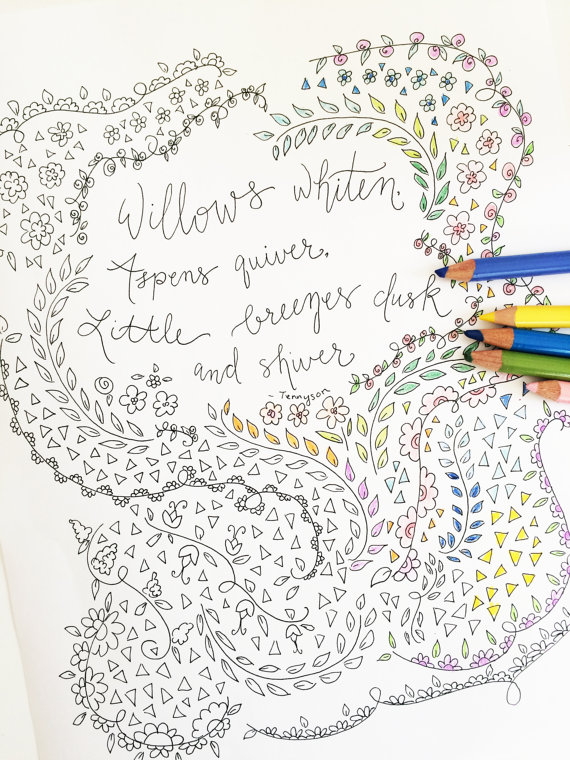 Willows whiten,
Aspens quiver,
Little breezes dusk
and shiver
- Tennyson